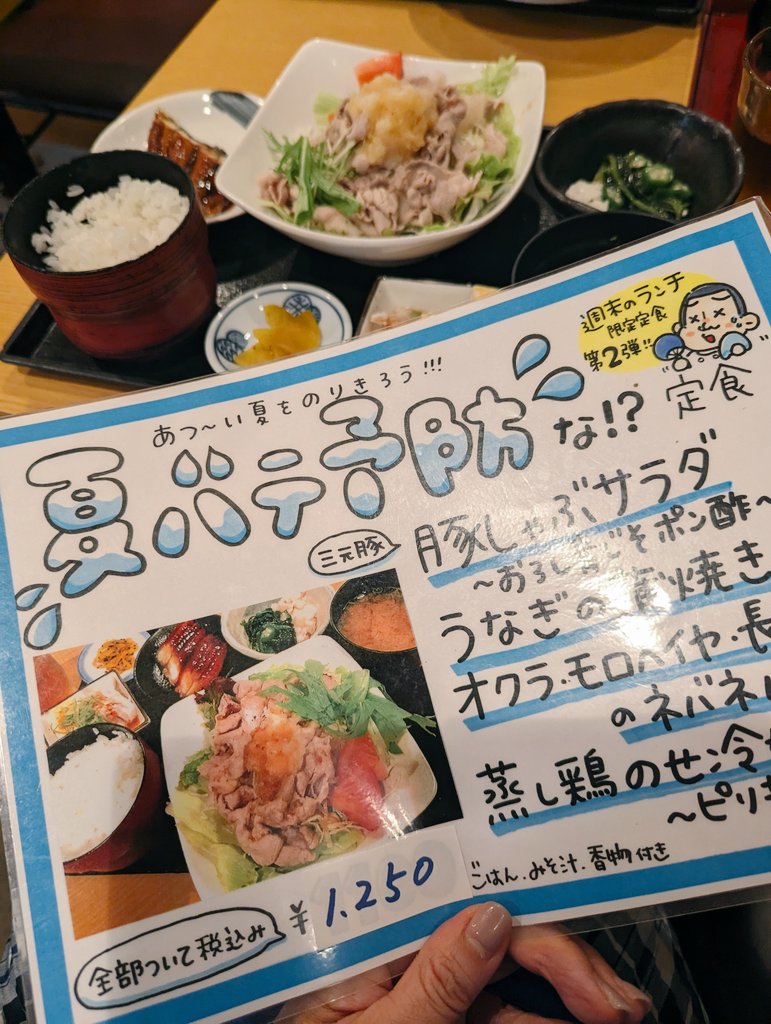 あつ〜い夏をのりきろう!!!
週末のランチ
限定定食
第2弾
夏バテ予防な!?
"定食"
三元豚
豚しゃぶサラダ
〜おろし
そポン酢〜
うなぎの
焼き
オクラ・モロヘイヤ・長
のネバネバ
蒸し鶏のせ冷
〜ピリ
ごはん.みそ汁.香物付き
全部ついて税込み
¥1.250